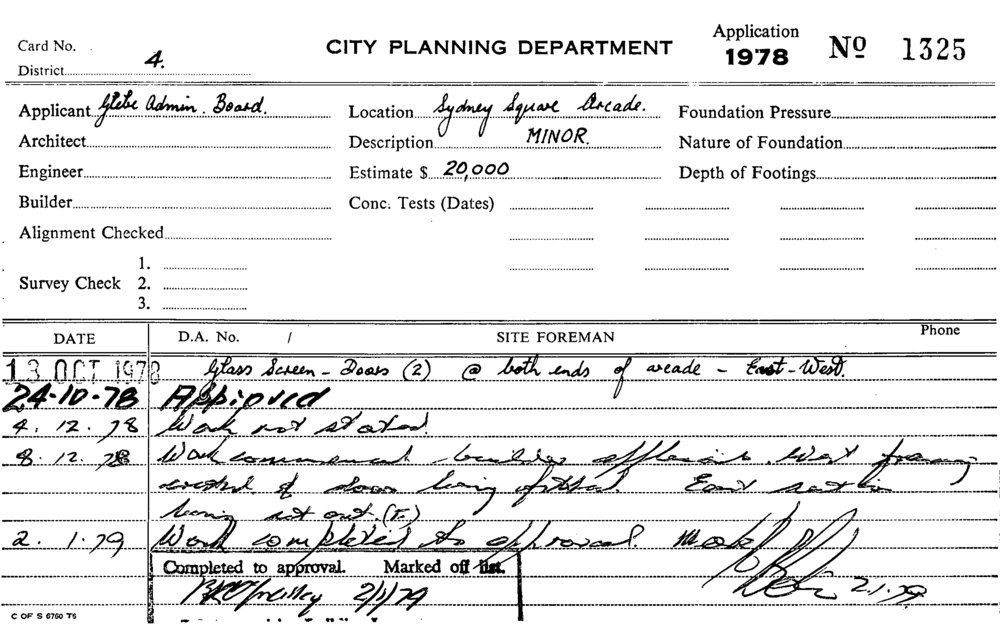 Card No.
CITY PLANNING DEPARTMENT
Application
1978 Nº 1325
District 4.
Applicant Glebe Admin. Board.
Location Sydney Square Arcade.
Foundation Pressure
Architect
Description MINOR.
Nature of Foundation
Engineer
Estimate $ 20,000
Depth of Footings
Builder
Conc. Tests (Dates)
Alignment Checked
Survey Check 1.
2.
3.
DATE D.A. No. / SITE FOREMAN Phone
13 OCT 1978 Glass Screen - Doors (2) @ both ends of arcade - East-West.
24-10-78 Approved
4. 12. 78 Work not started.
8. 12. 78 Work commenced builder West framing
erected & doors being fitted. East section
being set out.
2. 1. 79 Work completed to approval.
Completed to approval. Marked off list.
2/1/79
2.1.79
C OF S 6760 T6